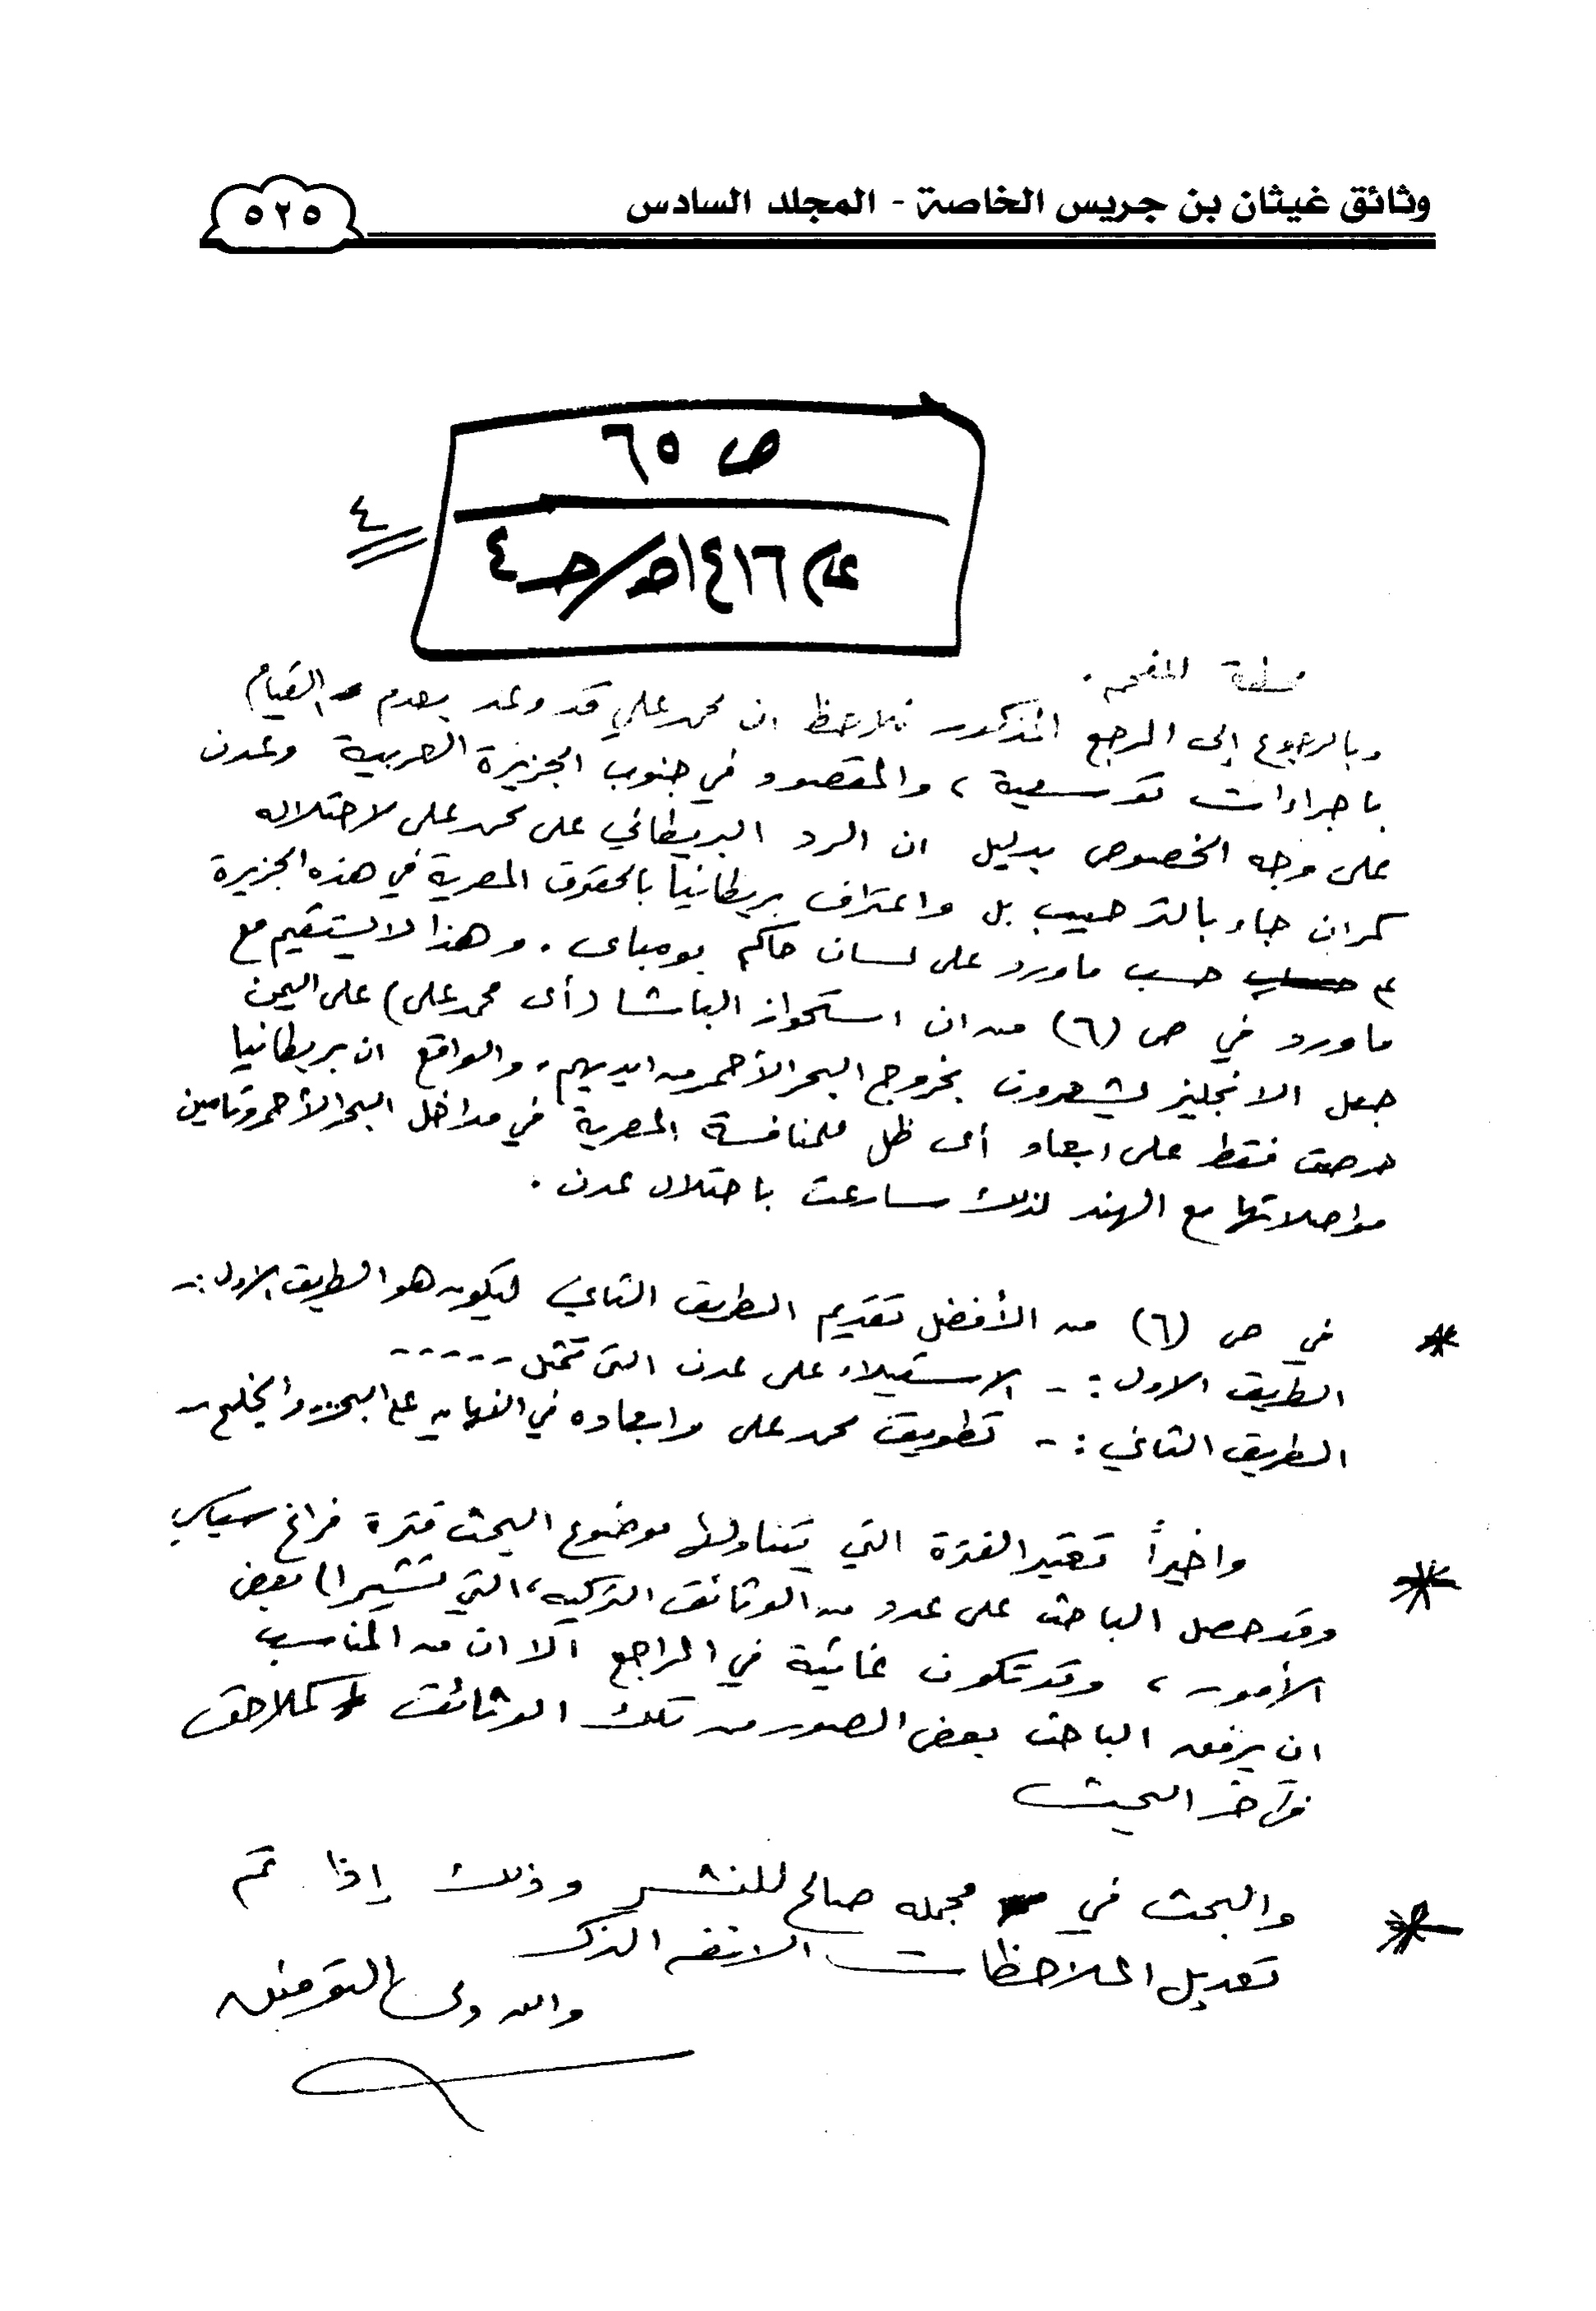 وثائق غيثان بن جريس الخاصة - المجلد السادس
٥٢٥
ص ٦٥
عام ١٤١٦هـ/حـ ٤
٤
وبالرجوع إلى المرجع المذكور نلاحظ ان محمد علي قد وعد بعدم القيام
باجراءات توسعية ، والمقصود في جنوب الجزيرة العربية وعدن
على وجه الخصوص بدليل ان الرد البريطاني على محمد علي لاحتلاله
كمران جاء بالترحيب بل واعتراف بريطانيا بالحقوق المصرية في هذه الجزيرة
حسب ماورد على لسان حاكم بومباي . وهذا لا يستقيم مع
ماورد في ص (٦) من ان استحواز الباشا (أي محمد علي) على اليمن
جعل الانجليز يشعرون بخروج البحر الأحمر من ايديهم. والواقع ان بريطانيا
حرصت فقط على ابعاد أي ظل للمنافسة المصرية في مداخل البحر الأحمر وتامين
مواصلاتها مع الهند لذلك سارعت باحتلال عدن .
* في ص (٦) من الأفضل تقديم الطريق الثاني ليكون هو الطريق الاول :-
الطريق الاول : - الاستيلاء على عدن التي تمثل -----
الطريق الثاني : - تطويق محمد علي وابعاده في النهاية عن البحر .. والخليج --
* واخيراً تعتبر الفترة التي يتناولها موضوع البحث فترة فراغ سياسي
وقد حصل الباحث على عدد من الوثائق التركيه، التي تشير الى بعض
الأمور ، وقد تكون غائبة في المراجع الا ان من المناسب
ان يرفق الباحث بعض الصور من تلك الوثائق كملاحق
في آخر البحث
* والبحث في مجمله صالح للنشر وذلك إذا تم
تعديل الملاحظات الانفه الذكر
والله ولي التوفيق